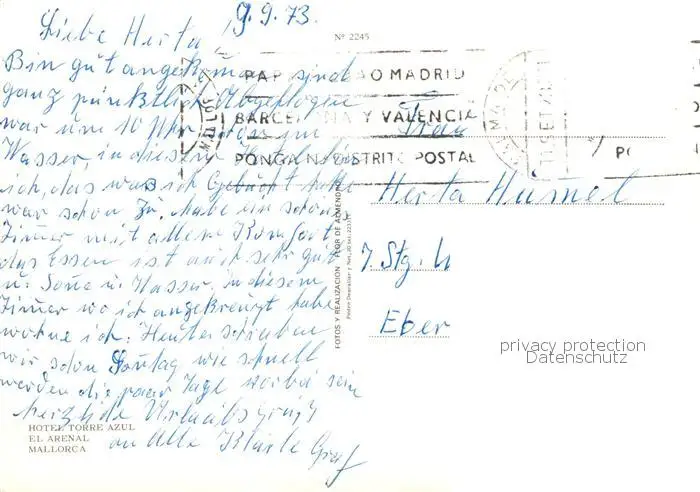 9.9.73.
Liebe Herta!
Bin gut angekommen sind
ganz pünktlich Abgeflogen
war um 10 Uhr
Wasser, in diesem Hotel bin
ich, das was ich Gebucht hatte
war schon zu, habe ein schönes
Zimer mit allem Komfort
das Essen ist auch sehr gut
u. Sone u. Wasser, in diesem
Zimer wo ich angekreuzt habe
wohne ich. Heute schreiben
wir schon Sontag wie schnell
werden die paar Tage vorbei sein
herzliche Urlaubsgrüße
an Alle Klärle Graf
HOTEL TORRE AZUL
EL ARENAL
MALLORCA
Nº 2245
PAP AO MADRID
BARCE NA Y VALENCIA
PONGA N DISTRITO POSTAL
FOTOS Y REALIZACION FLOR DE ALMENDRO
Frau
Herta Hümel
7. Stg. 4
Eber
privacy protection
Datenschutz